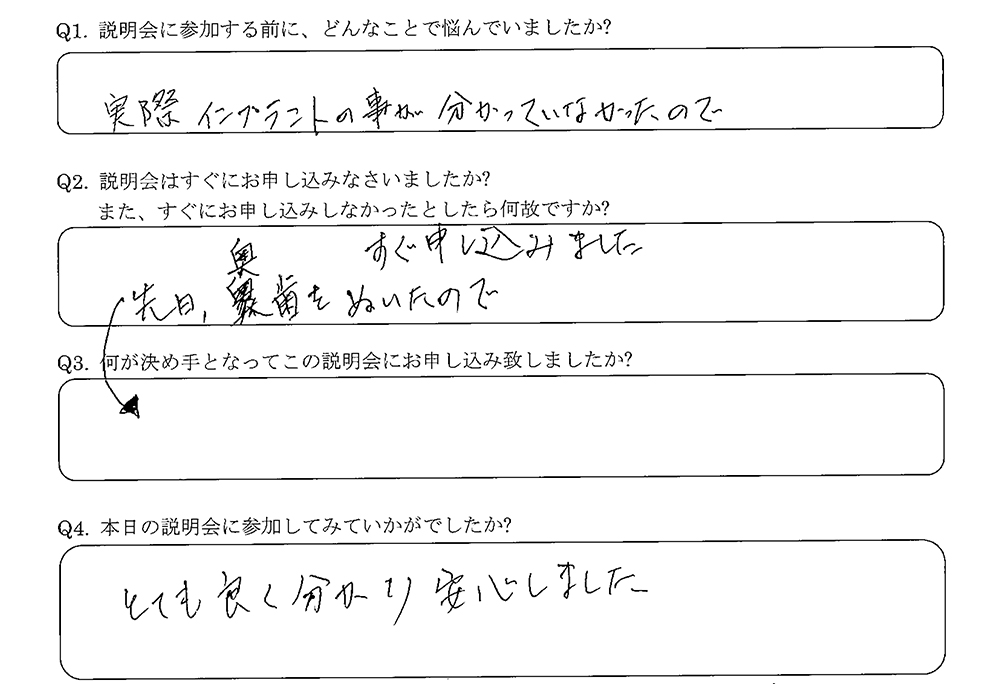 Q1. 説明会に参加する前に、どんなことで悩んでいましたか?
実際 インプラントの事が 分かっていなかったので
Q2. 説明会はすぐにお申し込みなさいましたか?
また、すぐにお申し込みしなかったとしたら何故ですか?
すぐ申し込みました
先日, 奥歯をぬいたので
Q3. 何が決め手となってこの説明会にお申し込み致しましたか?
Q4. 本日の説明会に参加してみていかがでしたか?
とても良く分かり 安心しました